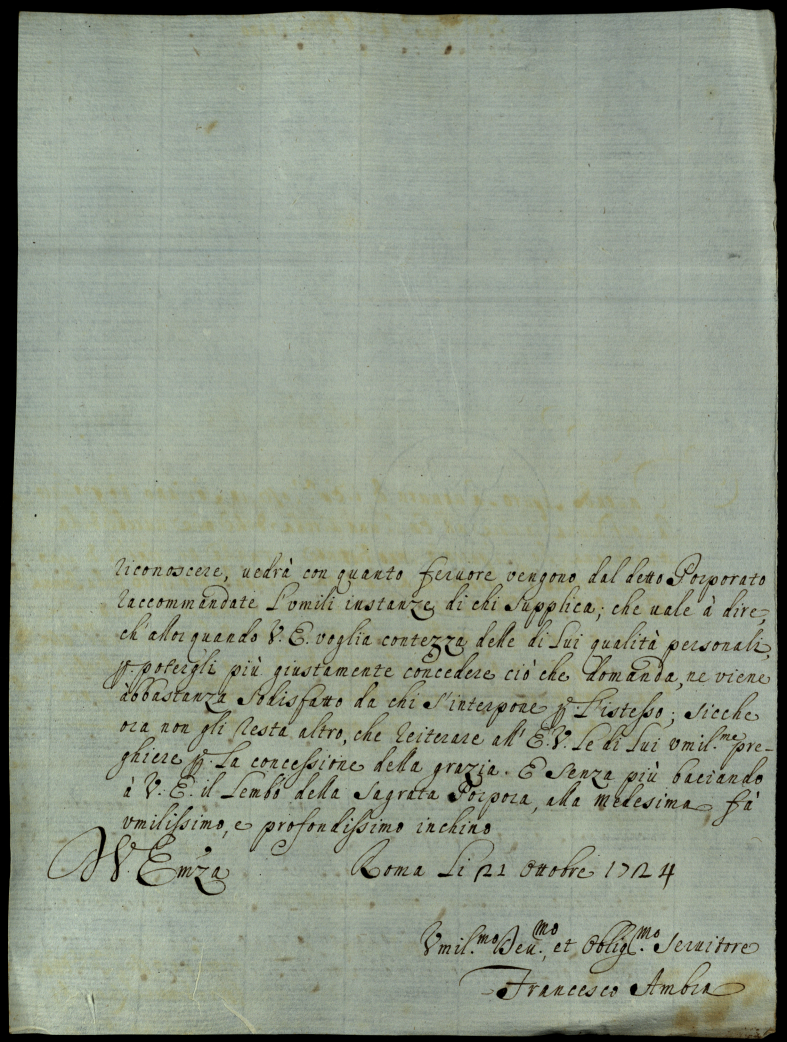 riconoscere, uedrà con quanto feruore vengono dal detto Porporato
raccommandate l'vmili instanze di chi supplica; che uale à dire,
ch'allor quando V. E. voglia contezza delle di lui qualità personali,
p potergli più giustamente concedere ciò che domanda, ne viene
abbastanza sodisfatto da chi s'interpone p l'istesso; sicche
ora non gli resta altro, che reiterare all' E. V. le di lui vmil.me pre-
ghiere p la concessione della grazia. E senza più baciando
à V. E. il lembo della sagrata Porpora, alla medesima fà
vmilissimo, e profondissimo inchino
V. Emza
Roma li 21 Ottobre 1724
Vmil.mo Deu.mo, et Oblig.mo Seruitore
Francesco Ambra